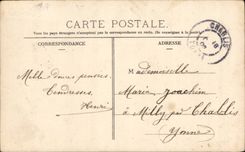 CARTE POSTALE.
Tous les pays étrangers n'acceptent pas la correspondance au recto, (Se renseigner à la poste).
CORRESPONDANCE
ADRESSE
CHABLIS
YONNE
Mille douces pensées.
Tendresses
Henri
Mademoiselle
Marie Joachim
à Milly près Chablis
Yonne